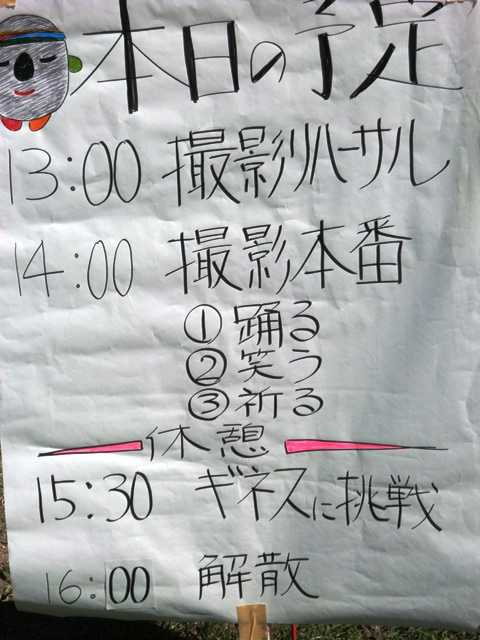 本日の予定
13:00 撮影リハーサル
14:00 撮影本番
①踊る
②笑う
③祈る
休憩
15:30 ギネスに挑戦
16:00 解散